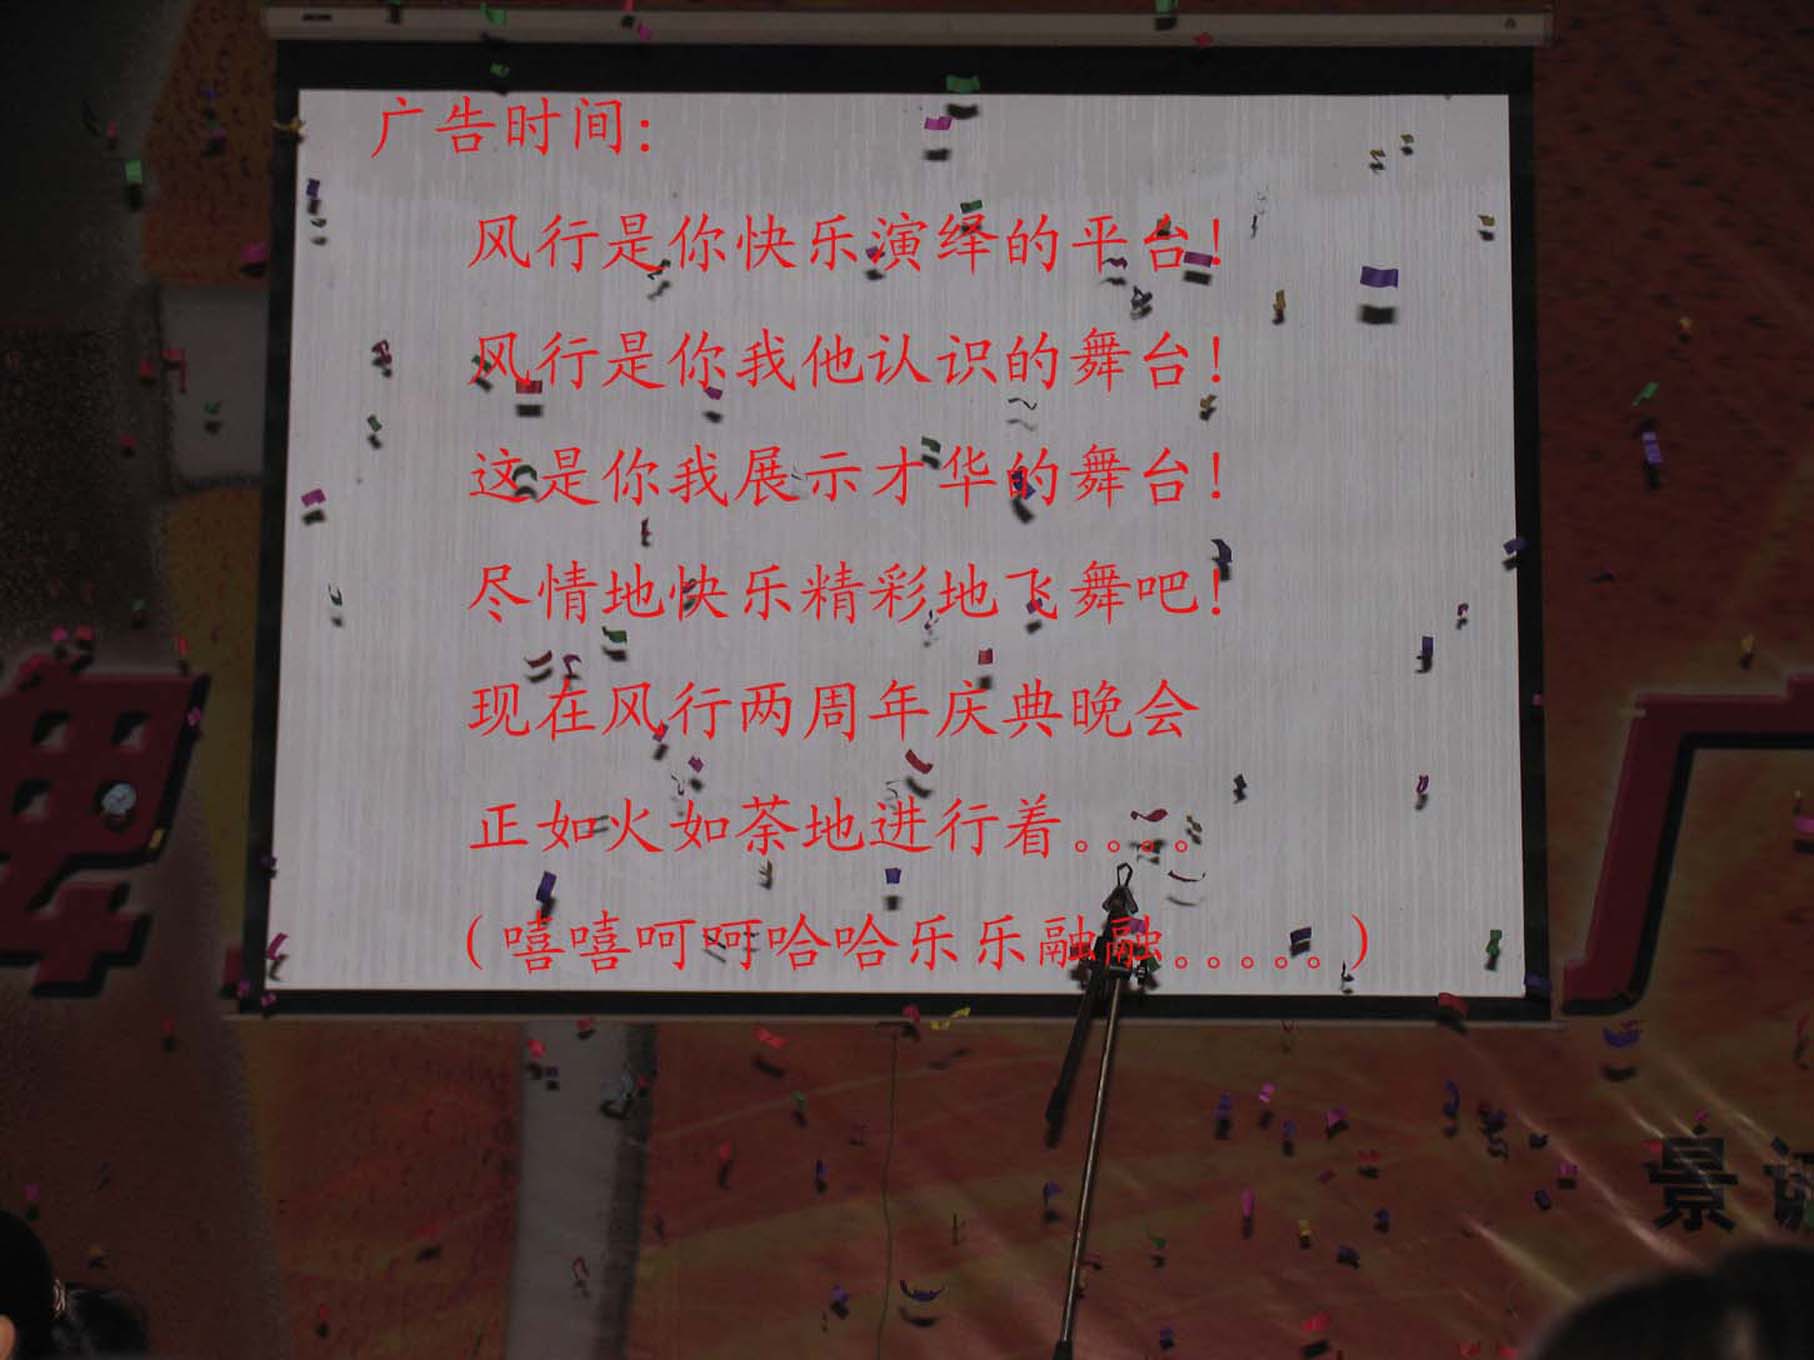 广告时间:
风行是你快乐演绎的平台!
风行是你我他认识的舞台!
这是你我展示才华的舞台!
尽情地快乐精彩地飞舞吧!
现在风行两周年庆典晚会
正如火如荼地进行着。。。。
(嘻嘻呵呵哈哈乐乐融融。。。。。)
景